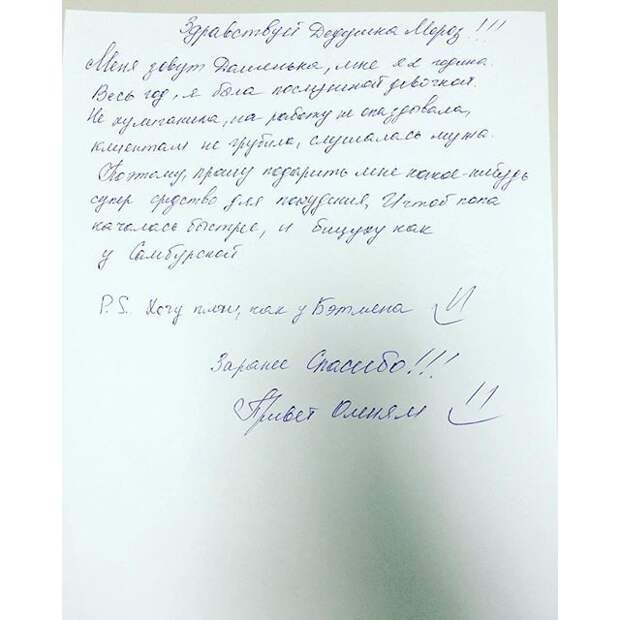 Здравствуй Дедушка Мороз!!!
Меня зовут Дашенька, мне 22 годика.
Весь год, я была послушной девочкой.
Не хулиганила, на работу не опаздывала,
клиентам не грубила, слушалась мужа.
Поэтому, прошу подарить мне какое-нибудь
супер средство для похудения, И чтоб попа
качалась быстрее, и бицуху как
у Самбурской
P.S. Хочу плащ, как у Бэтмена
Заранее Спасибо!!!
Привет Оленям